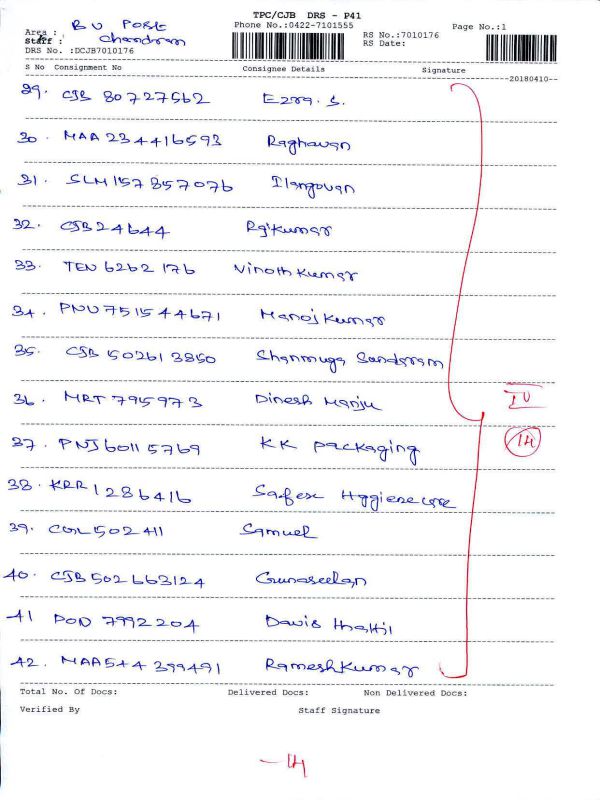 TPC/CJB DRS - P41
Area : B U Post Phone No.:0422-7101555 Page No.:1
Staff : Chandran RS No.:7010176
DRS No. :DCJB7010176 RS Date:
S No Consignment No Consignee Details Signature
--20180410--
29. CJB 80727562 Ezra. S.
30. MAA 234416593 Raghavan
31. SLM 157857076 Ilangovan
32. CJB 24644 Rajkumar
33. TEN 6262176 Vinoth Kumar
34. PNU 751544671 Manoj Kumar
35. CJB 502613850 Shanmuga Sundaram
36. MRT 795973 Dinesh Manju
37. PNJ 60115769 KK Packaging
38. KRR 1286416 Safese Hygienecare
39. COL 502411 Samuel
40. CJB 502663124 Gunaseelan
41 POD 7992204 Davis Thattil
42. MAA 544399491 Ramesh Kumar
IV
14
Total No. Of Docs: Delivered Docs: Non Delivered Docs:
Verified By Staff Signature
- 14